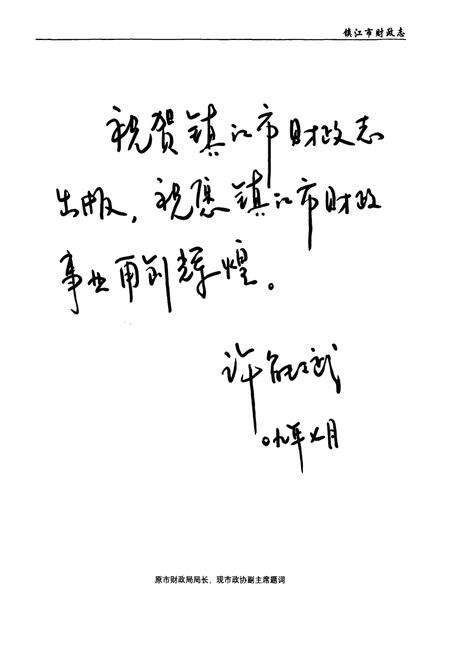 镇江市财政志
祝贺镇江市财政志
出版，祝愿镇江市财政
事业再创辉煌。
许
09年7月
原市财政局局长，现市政协副主席题词